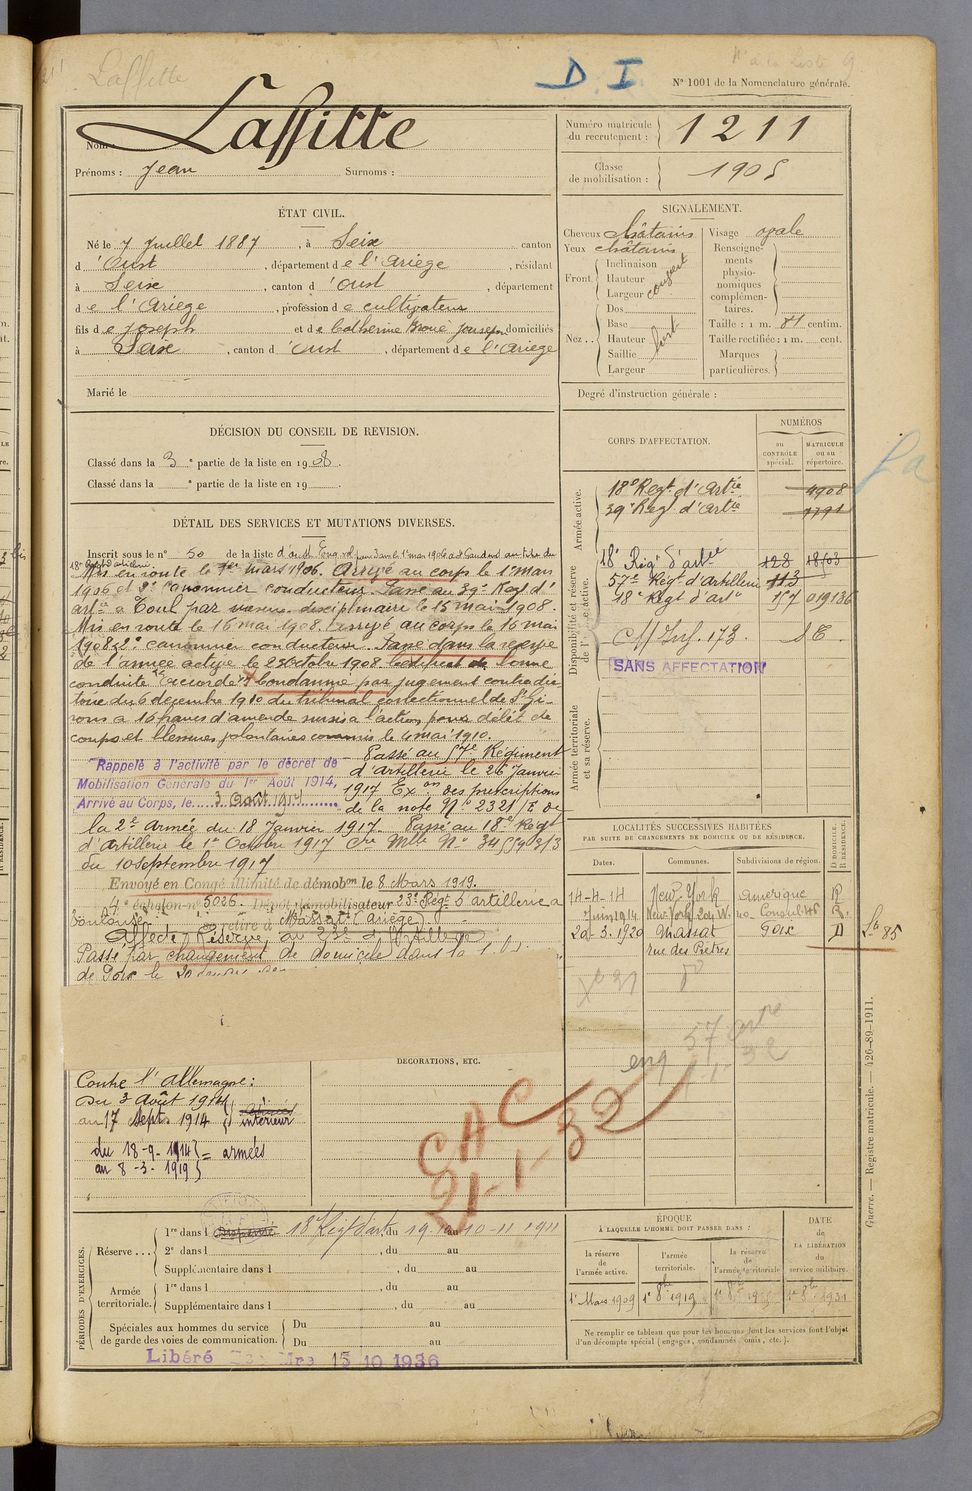 Laffitte
D. I.
N° 1001 de la Nomenclature générale.
Nom : Laffitte
Prénoms : Jean Surnoms :
Numéro matricule du recrutement : 1211
Classe de mobilisation : 1905
ÉTAT CIVIL.
Né le 7 Juillet 1887, à Seix canton
d'Oust, département de l'Ariège, résidant
à Seix, canton d'Oust, département
de l'Ariège, profession de cultivateur
fils de Joseph et de Catherine Broué domiciliés
à Seix, canton d'Oust, département de l'Ariège
Marié le
SIGNALEMENT.
Cheveux châtains
Yeux châtains
Front Inclinaison
Hauteur
Largeur couvert
Nez Dos
Base
Hauteur
Saillie
Largeur
Visage ovale
Renseignements physionomiques complémentaires.
Taille : 1 m. 81 centim.
Taille rectifiée : 1 m. cent.
Marques particulières.
Degré d'instruction générale :
DÉCISION DU CONSEIL DE REVISION.
Classé dans la 3e partie de la liste en 1908.
Classé dans la e partie de la liste en 19
DÉTAIL DES SERVICES ET MUTATIONS DIVERSES.
Inscrit sous le n° 50 de la liste d'Oust Eng. vol. pour 3 ans le 1er mars 1906
18e Régt d'artillerie.
Mis en route le 1er mars 1906. Arrivé au corps le 1er mars
1906 et 2e canonnier conducteur. Passé au 39e Rég. d'
artie à Toul par mesure disciplinaire le 15 mai 1908.
Mis en route le 16 mai 1908. Arrivé au corps le 16 mai
1908 2e canonnier conducteur. Passé dans la réserve
de l'armée active le 23 Octobre 1908 Certificat de bonne
conduite accordé. Condamné par jugement contradic-
toire du 6 décembre 1910 du tribunal correctionnel de St Gi-
rons à 16 francs d'amende sursis à l'action pour délit de
coups et blessures volontaires commis le 4 mai 1910.
Rappelé à l'activité par le décret de
Mobilisation Générale du 1er Août 1914,
Arrivé au Corps, le 3 Août 1914
Passé au 57e Régiment
d'artillerie le 26 Janvier
1917 Exon des prescriptions
de la note No 2321/E de
la 2e Armée du 18 Janvier 1917. Passé au 18e Régt
d'Artillerie le 1er Octobre 1917
du 10 septembre 1917
Envoyé en Congé illimité de démobon le 8 Mars 1919.
4e échelon n° 5026. Dépôt démobilisateur 23e Régt d'artillerie à
Toulouse se retire à Massat (Ariège)
Affecté Réserve au
Passé par changement de domicile dans la
de Foix le 20
CORPS D'AFFECTATION.
NUMÉROS
au CONTRÔLE spécial.
MATRICULE ou au répertoire.
Armée active.
18e Regt. d'Artie 4908
39e Reg. d'Artie
Disponibilité et réserve de l'armée active.
18e Régt d'artie 128
57e Régt d'Artillerie 113
18e Régt d'artie 157 019136
173.
SANS AFFECTATION
Armée territoriale et sa réserve.
LOCALITÉS SUCCESSIVES HABITÉES
PAR SUITE DE CHANGEMENTS DE DOMICILE OU DE RÉSIDENCE.
Dates. Communes. Subdivisions de région. D DOMICILE. R RÉSIDENCE.
14-4-14 New-York Amérique R
7 Juin 1914 New-York R
29-3-1920 Massat Foix D
rue des Prêtres
DÉCORATIONS, ETC.
Contre l'Allemagne :
Du 3 Août 1914
au 17 Sept. 1914 intérieur
du 18-9-1914
au 8-3-1919 = armées
CAC
21-1-32
PÉRIODES D'EXERCICES.
Réserve ... 1re dans l 18e Régt d'art. du 19-10 au 10-11 1911
2e dans l, du au
Supplémentaire dans l, du au
Armée territoriale. 1re dans l, du au
Supplémentaire dans l, du au
Spéciales aux hommes du service de garde des voies de communication. Du au
Du au
Libéré 15 10 1936
ÉPOQUE
À LAQUELLE L'HOMME DOIT PASSER DANS :
la réserve de l'armée active. l'armée territoriale. la réserve de l'armée territoriale
DATE de LA LIBÉRATION du service militaire.
1er Mars 1909 1er 8bre 1919 1er 8bre 1931
Ne remplir ce tableau que pour les hommes dont les services font l'objet
d'un décompte spécial (engagés, condamnés, omis, etc.).
Guerre. — Registre matricule. — 426-89-1911.